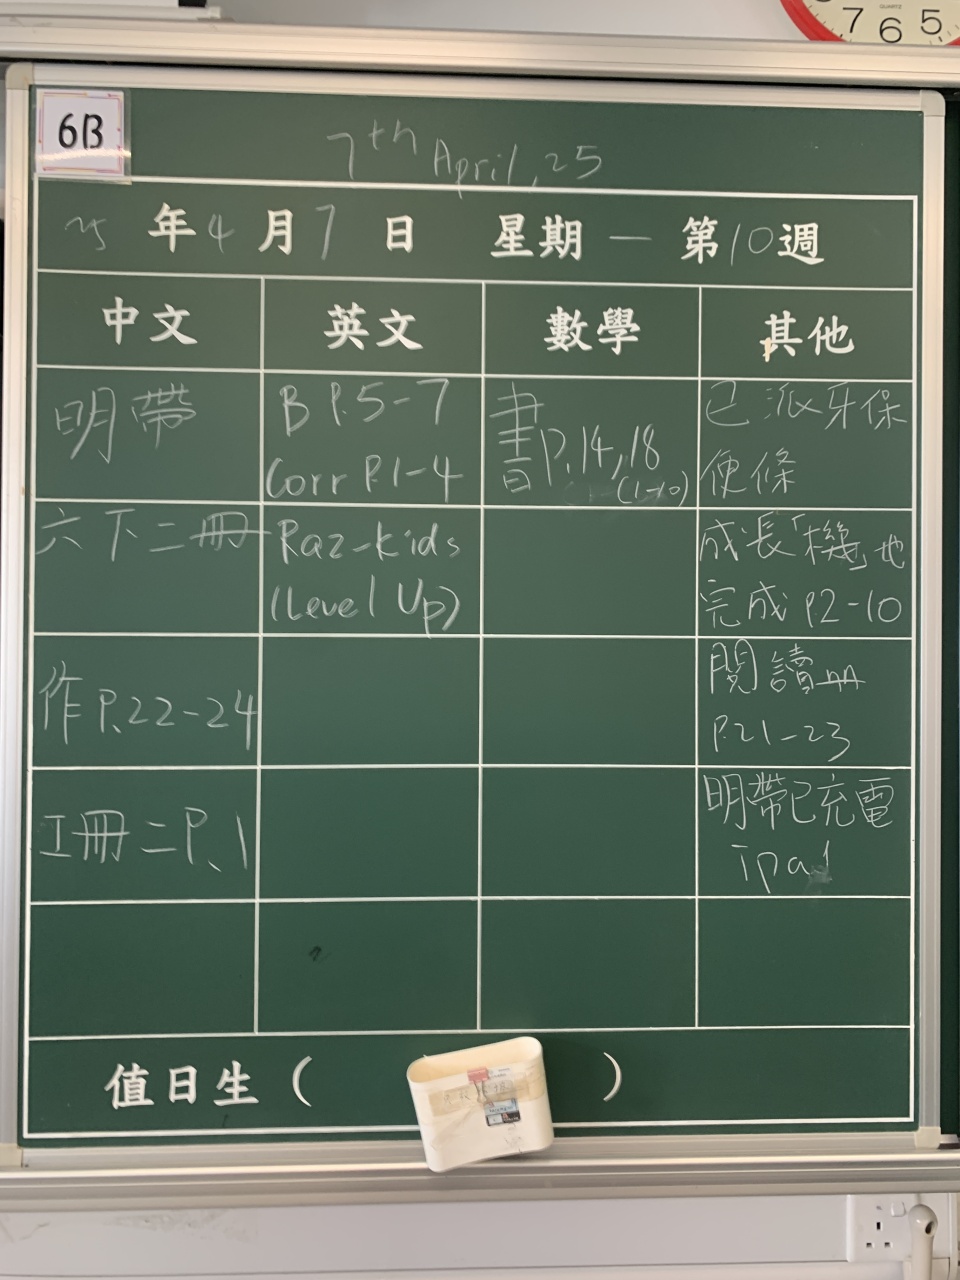 7 6 5
QUARTZ
6B
7th April, 25
25 年 4 月 7 日 星期 一 第 10 週
中文 英文 數學 其他
明帶
六下二冊
作 P.22-24
工冊二 P.1
B P.5-7
Corr P.1-4
Raz-kids
(Level Up)
書 P.14, 18
(1-10)
已派牙保
便條
成長「機」地
完成 P.2-10
閱讀冊
P.21-23
明帶已充電
ipad
值日生 ( )